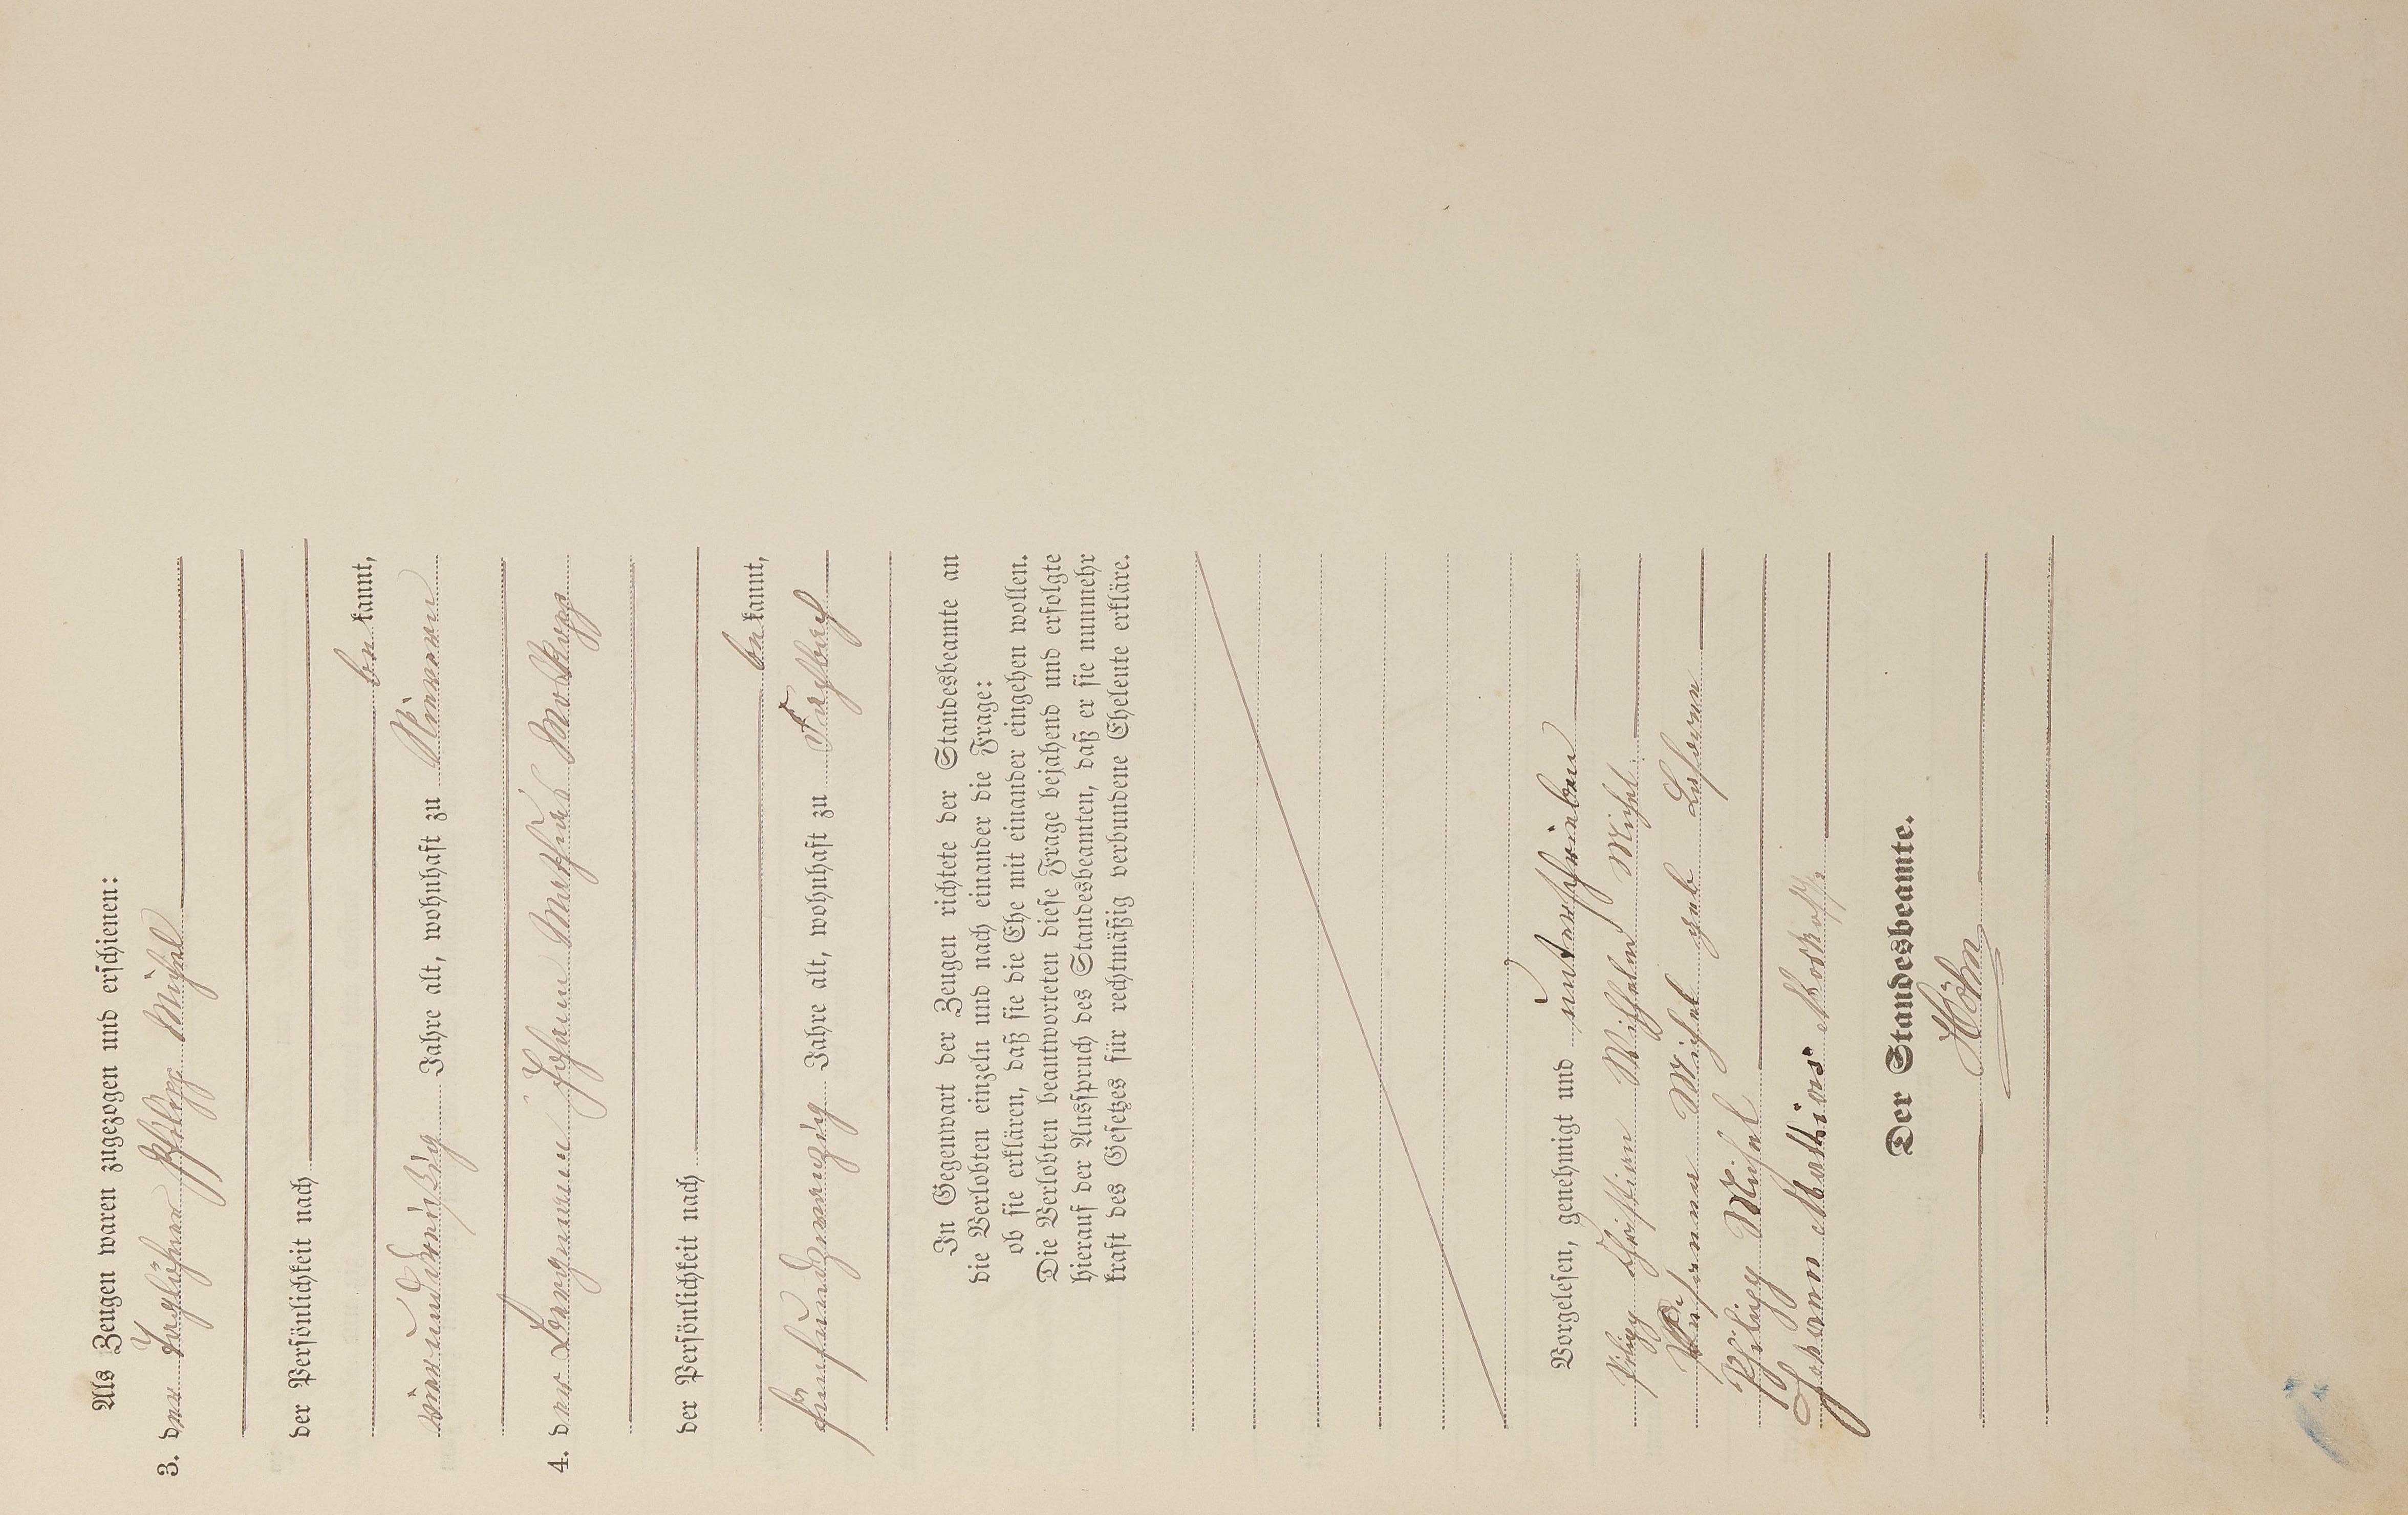 Als Zeugen waren zugezogen und erschienen:
3. der Taglöhner Philipp Michel
der Persönlichkeit nach
be kannt,
vierunddreißig Jahre alt, wohnhaft zu
4. der Bergmann Johann Mathias Moskopp
der Persönlichkeit nach
be kannt,
fünfundzwanzig Jahre alt, wohnhaft zu Fachbach
In Gegenwart der Zeugen richtete der Standesbeamte an
die Verlobten einzeln und nach einander die Frage:
ob sie erklären, daß sie die Ehe mit einander eingehen wollen.
Die Verlobten beantworteten diese Frage bejahend und erfolgte
hierauf der Ausspruch des Standesbeamten, daß er sie nunmehr
kraft des Gesetzes für rechtmäßig verbundene Eheleute erkläre.
Vorgelesen, genehmigt und unterschrieben
Philipp Christian Wilhelm Michel
Michel geb
Philipp Michel
Johann Mathias Moskopp
Der Standesbeamte.
Höhn